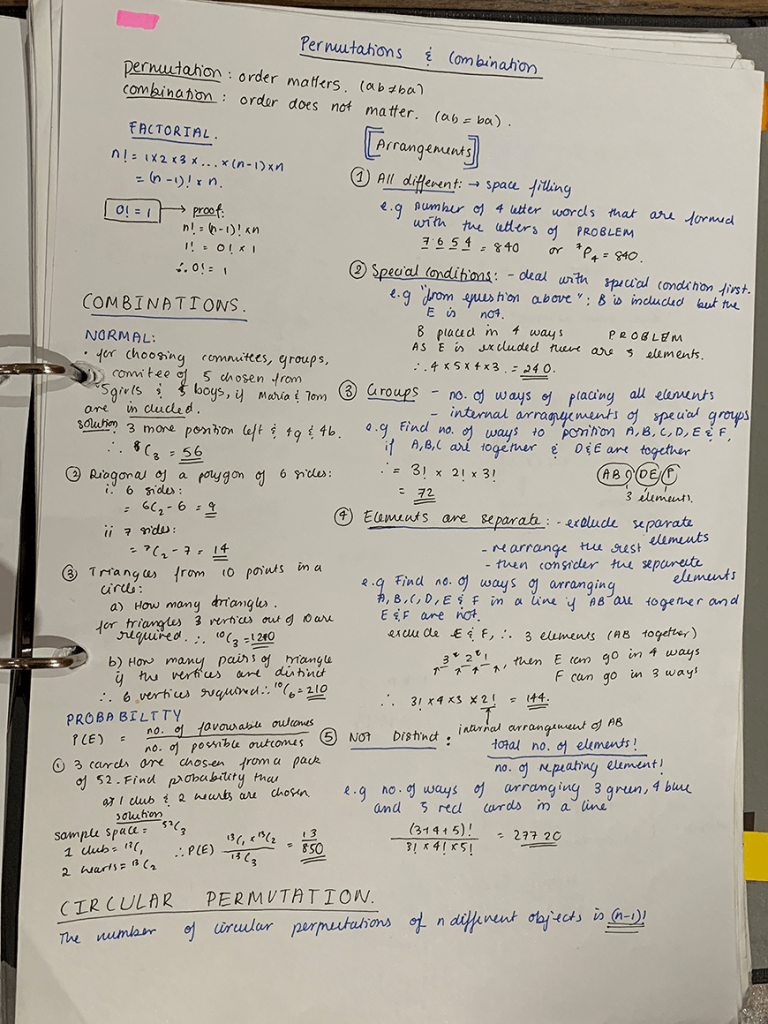 Permutations & Combination
permutation : order matters. (ab ≠ ba)
combination : order does not matter. (ab = ba).
FACTORIAL.
n! = 1 x 2 x 3 x ... x (n-1) x n
= (n-1)! x n.
0! = 1 → proof:
n! = (n-1)! x n
1! = 0! x 1
∴ 0! = 1
COMBINATIONS.
NORMAL:
• for choosing committees, groups,
comitee of 5 chosen from
5girls & 5 boys, if Maria & Tom
are included.
solution: 3 more position left & 4g & 4b.
∴ ⁸C₃ = 56
② Diagonal of a polygon of 6 sides:
i. 6 sides:
= 6C₂ - 6 = 9
ii 7 sides:
= ⁷C₂ - 7 = 14
③ Triangles from 10 points in a
circle:
a) How many triangles.
for triangles 3 vertices out of 10 are
required. ∴ ¹⁰C₃ = 1200
b) How many pairs of triangle
if the vertices are distinct
∴ 6 vertices required ∴ ¹⁰C₆ = 210
PROBABILITY
P(E) = no. of favourable outcomes
no. of possible outcomes
① 3 cards are chosen from a pack
of 52. Find probability that
a) 1 club & 2 hearts are chosen
solution
sample space = ⁵²C₃
1 club = ¹³C₁ ∴ P(E) ¹³C₁ x ¹³C₂ = 13
2 hearts = ¹³C₂ ¹³C₃ 850
[Arrangements]
① All different: → space filling
e.g number of 4 letter words that are formed
with the letters of PROBLEM
7 6 5 4 = 840 or ⁷P₄ = 840.
② Special conditions: - deal with special condition first.
e.g "from question above": B is included but the
E is not.
B placed in 4 ways PROBLEM
AS E is excluded there are 5 elements.
∴ 4 x 5 x 4 x 3. = 240.
③ Groups - no. of ways of placing all elements
- internal arrangements of special groups
e.g Find no. of ways to position A, B, C, D, E & F,
if A, B, C are together & D & E are together
∴ = 3! x 2! x 3! ABC DE F
= 72 3 elements.
④ Elements are separate: - exclude separate
elements
- rearrange the rest
- then consider the separate
elements
e.g Find no. of ways of arranging
A, B, C, D, E & F in a line if AB are together and
E & F are not.
exclude E & F, ∴ 3 elements (AB together)
3 x 2 x 1, then E can go in 4 ways
F can go in 3 ways
∴ 3! x 4 x 3 x 2! = 144.
internal arrangement of AB
⑤ NOT Distinct: total no. of elements!
no. of repeating element!
e.g no. of ways of arranging 3 green, 4 blue
and 5 red cards in a line
(3+4+5)! = 27720
3! x 4! x 5!
CIRCULAR PERMUTATION.
The number of circular permutations of n different objects is (n-1)!